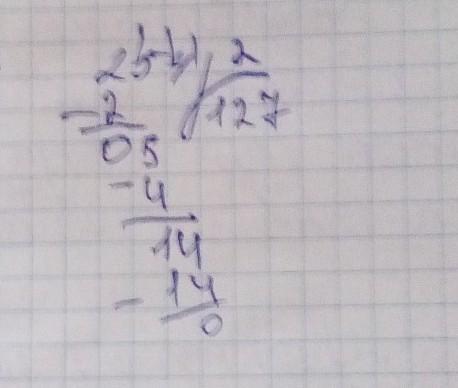 254 2
-2 127
05
-4
14
-14
0